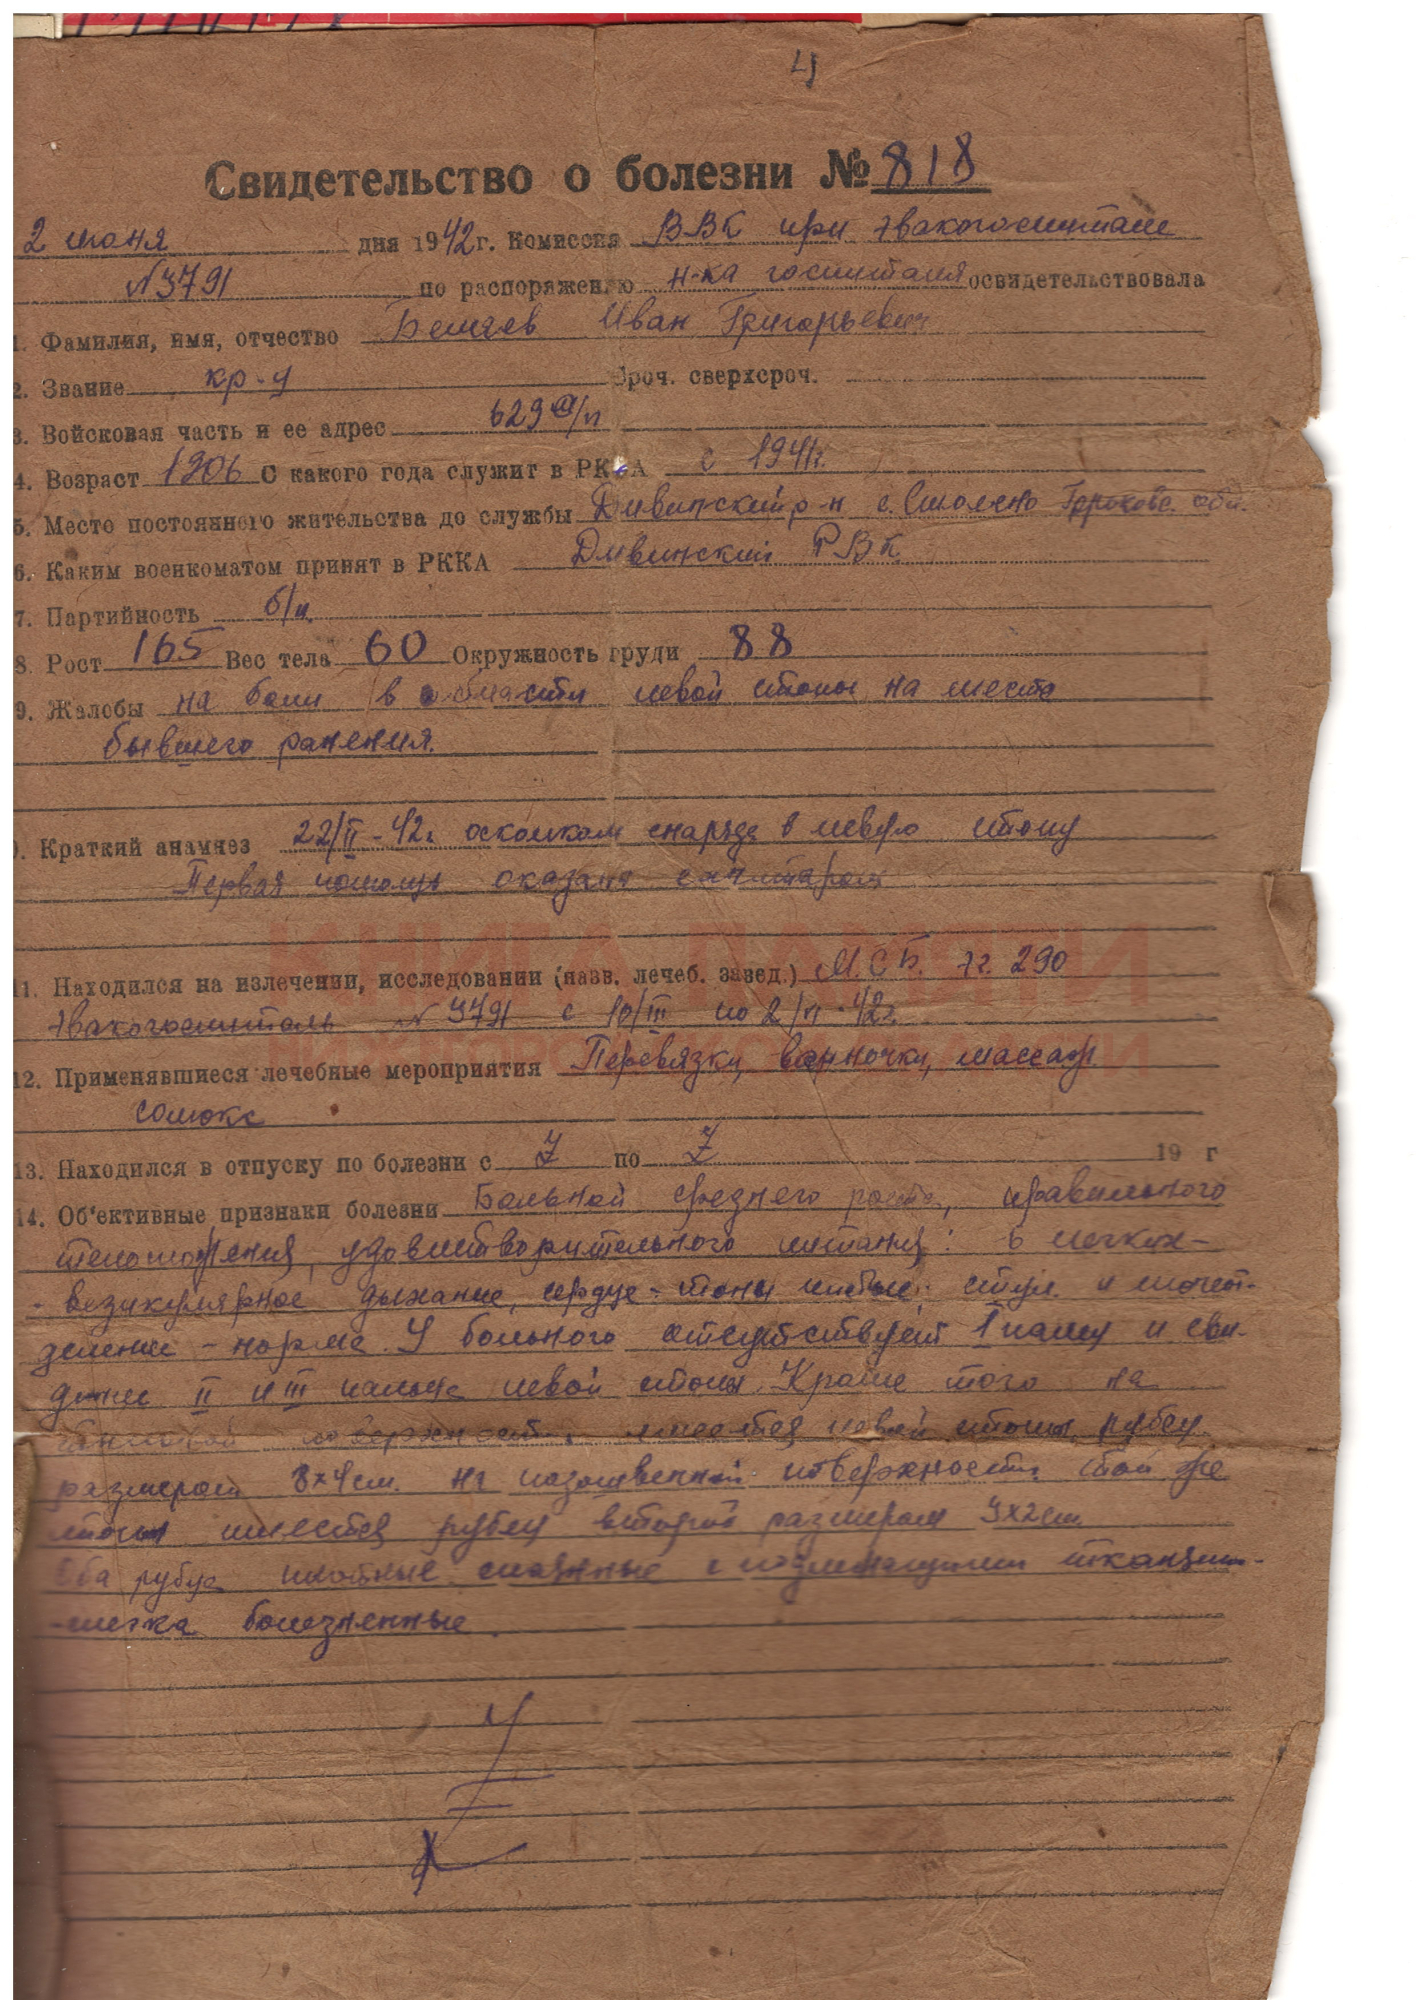 4
Свидетельство о болезни № 818
2 июня дня 1942 г. Комиссия ВВК при эвакогоспитале
№ 3791 по распоряжению н-ка госпиталя освидетельствовала
1. Фамилия, имя, отчество Беляев Иван Григорьевич
2. Звание кр-ц Сроч. сверхсроч.
3. Войсковая часть и ее адрес 629 /п
4. Возраст 1906 С какого года служит в РККА с 1941 г.
5. Место постоянного жительства до службы р-н с. Смолено Горьков. обл.
6. Каким военкоматом принят в РККА РВК.
7. Партийность б/п.
8. Рост 165 Вес тела 60 Окружность груди 88
9. Жалобы на боли в области левой стопы на месте
бывшего ранения.
0. Краткий анамнез 22/II-42г. осколком снаряда в левую стопу
Первая помощь оказана санитаром
11. Находился на излечении, исследовании (назв. лечеб. завед.) М.С.Б. 290
эвакогоспиталь № 3791 с 10/III по 2/VI-42г.
12. Применявшиеся лечебные мероприятия Перевязки, ванночки, массаж
солюкс
13. Находился в отпуску по болезни с Z по Z 19 г
14. Об'ективные признаки болезни Больной среднего роста, правильного
телосложения, удовлетворительного питания: в легких-
- везикулярное дыхание, сердце - тоны чистые, стул и мочеот-
деление - норма. У больного отсутствует I палец и
II и III пальца левой стопы. Кроме того на
поверхности имеется левой стопы рубец
размером 8х4см. на подошвенной поверхности той же
стопы имеется рубец второй размером 3х2см.
Оба рубца плотные спаянные с подлежащими тканями-
-слегка болезненные.
КНИГА ПАМЯТИ
НИЖЕГОРОДСКОЙ ОБЛАСТИ